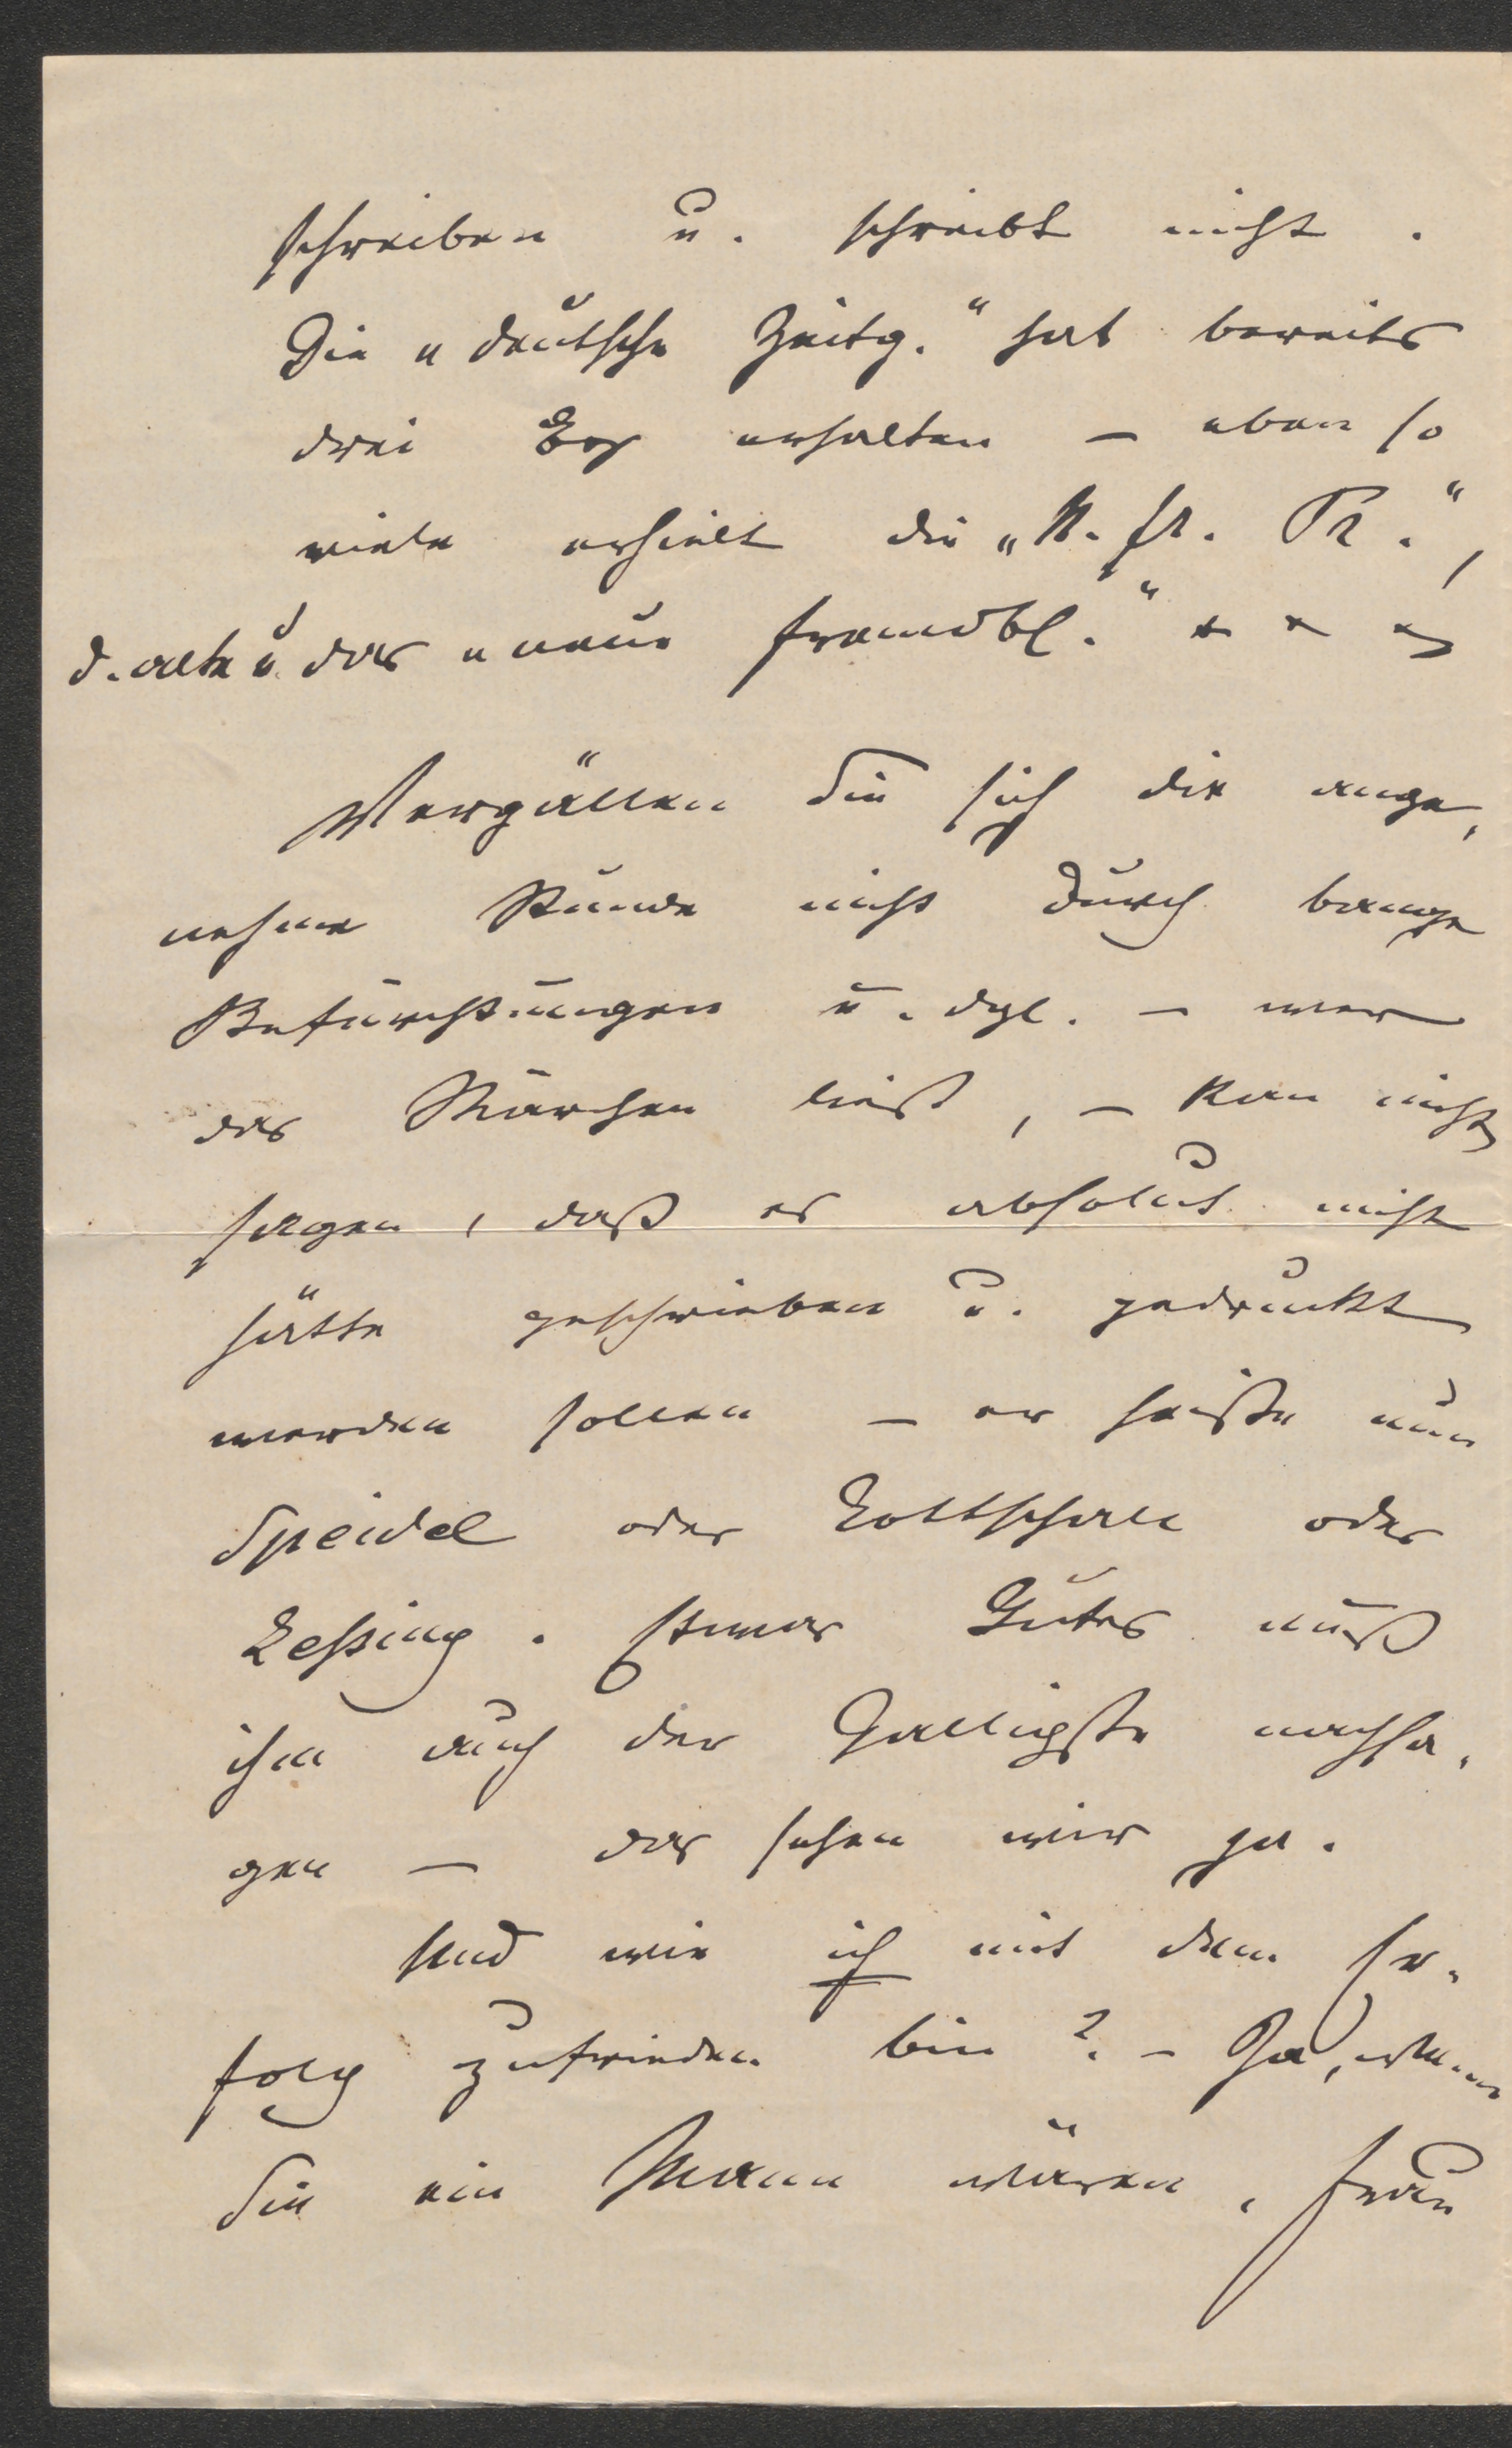 schreiben u. schreibt nicht.
Die „deutsche Zeitg." hat bereits
drei Ex erhalten – eben so
viele erhielt die „N. fr. Pr.",
d. alte u. das „neue Fremdbl."
Vergällen Sie sich die ange,
nehme Stunde nicht durch bange
Befürchtungen u. dgl. – wer
das Märchen liest, – kan nicht
sagen, daß es absolut nicht
hätte geschrieben u. gedruckt
werden sollen – er heiße nun
Speidel oder Gottschall oder
Leßing. Etwas Gutes muß
ihm auch der Galligste nachsa,
gen – das sehen wir ja.
Und wie ich mit dem Er,
folg zufrieden bin? – Ja, wenn
Sie ein Mann wären, Frau